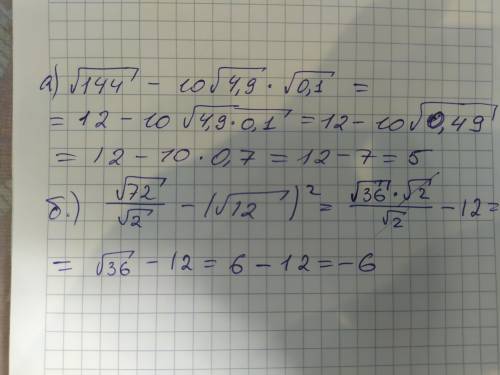 а) √144 - 10√4,9 · √0,1 =
= 12 - 10 √4,9·0,1 = 12 - 10√0,49
= 12 - 10 · 0,7 = 12 - 7 = 5
б.) √72/√2 - (√12)² = √36·√2/√2 - 12 =
= √36 - 12 = 6 - 12 = -6